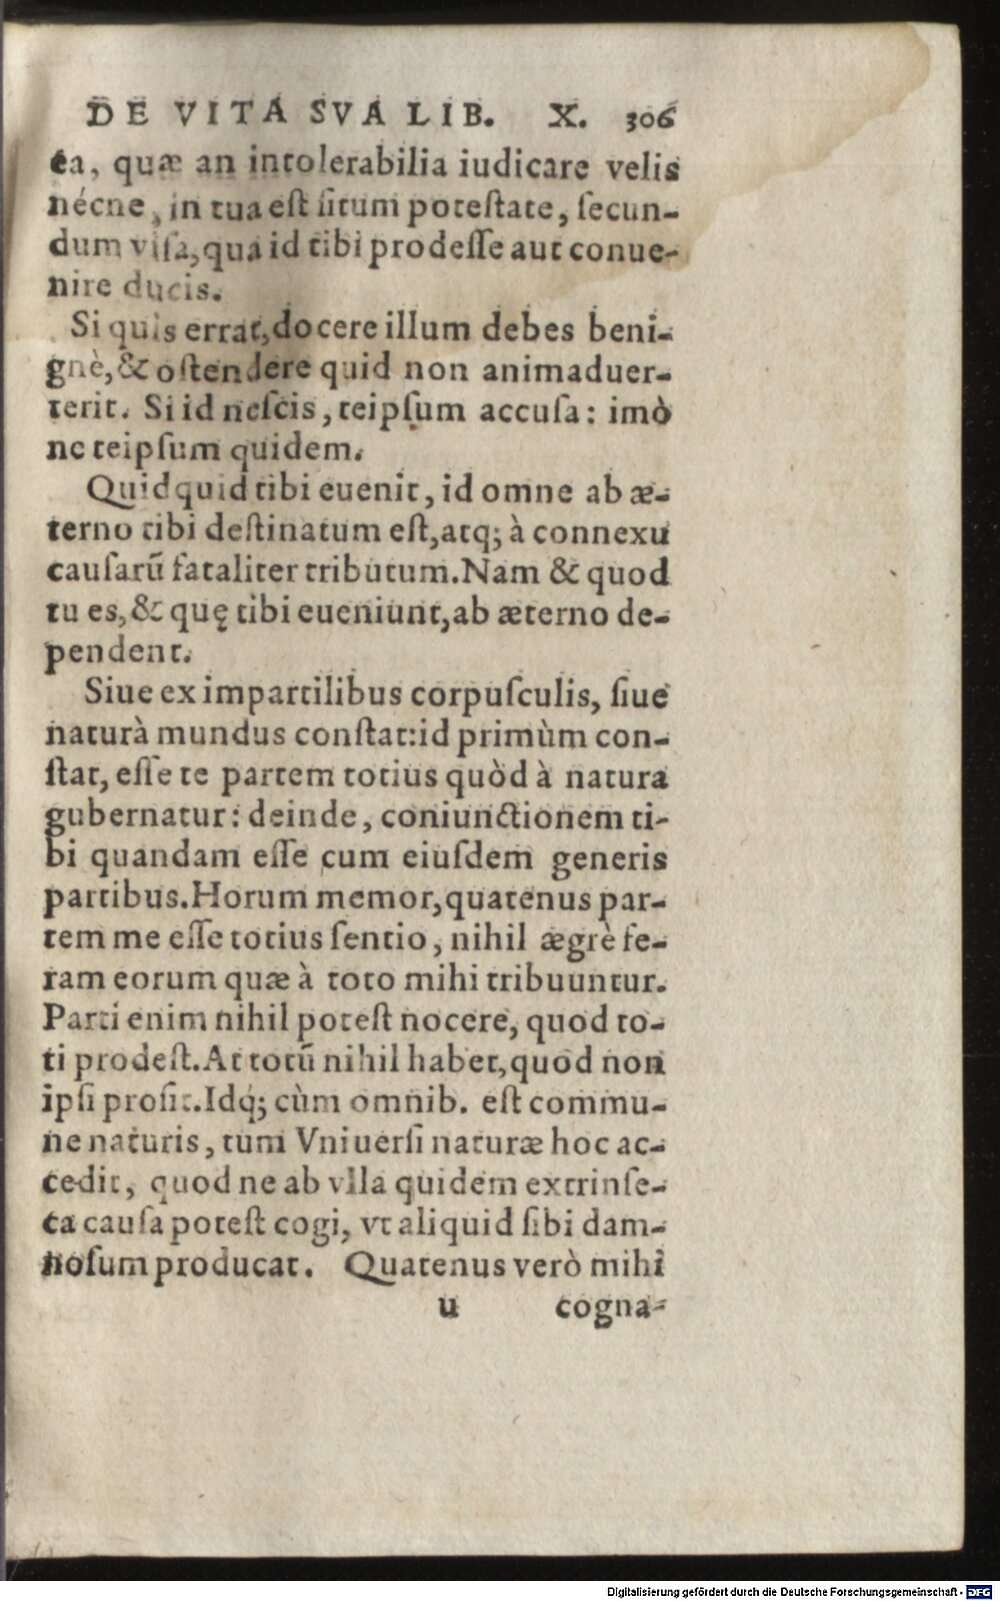 DE VITA SVA LIB. X. 306
ea, quæ an intolerabilia iudicare velis
nécne, in tua eſt ſitum poteſtate, ſecun-
dum viſa, qua id tibi prodeſſe aut conue-
nire ducis.
Si quis errat, docere illum debes beni-
gnè, & oſtendere quid non animaduer-
terit. Si id neſcis, teipſum accuſa: imò
ne teipſum quidem.
Quidquid tibi euenit, id omne ab æ-
terno tibi deſtinatum eſt, atq; à connexu
cauſarũ fataliter tributum. Nam & quod
tu es, & quę tibi eueniunt, ab æterno de-
pendent.
Siue ex impartilibus corpuſculis, ſiue
naturà mundus conſtat: id primùm con-
ſtat, eſſe te partem totius quòd à natura
gubernatur: deinde, coniunctionem ti-
bi quandam eſſe cum eiuſdem generis
partibus. Horum memor, quatenus par-
tem me eſſe totius ſentio, nihil ægrè fe-
ram eorum quæ à toto mihi tribuuntur.
Parti enim nihil poteſt nocere, quod to-
ti prodeſt. At totũ nihil habet, quod non
ipſi proſit. Idq́; cùm omnib. eſt commu-
ne naturis, tum Vniuerſi naturæ hoc ac-
cedit, quod ne ab vlla quidem extrinſe-
ca cauſa poteſt cogi, vt aliquid ſibi dam-
noſum producat. Quatenus verò mihi
u cogna-
Digitalisierung gefördert durch die Deutsche Forschungsgemeinschaft - DFG